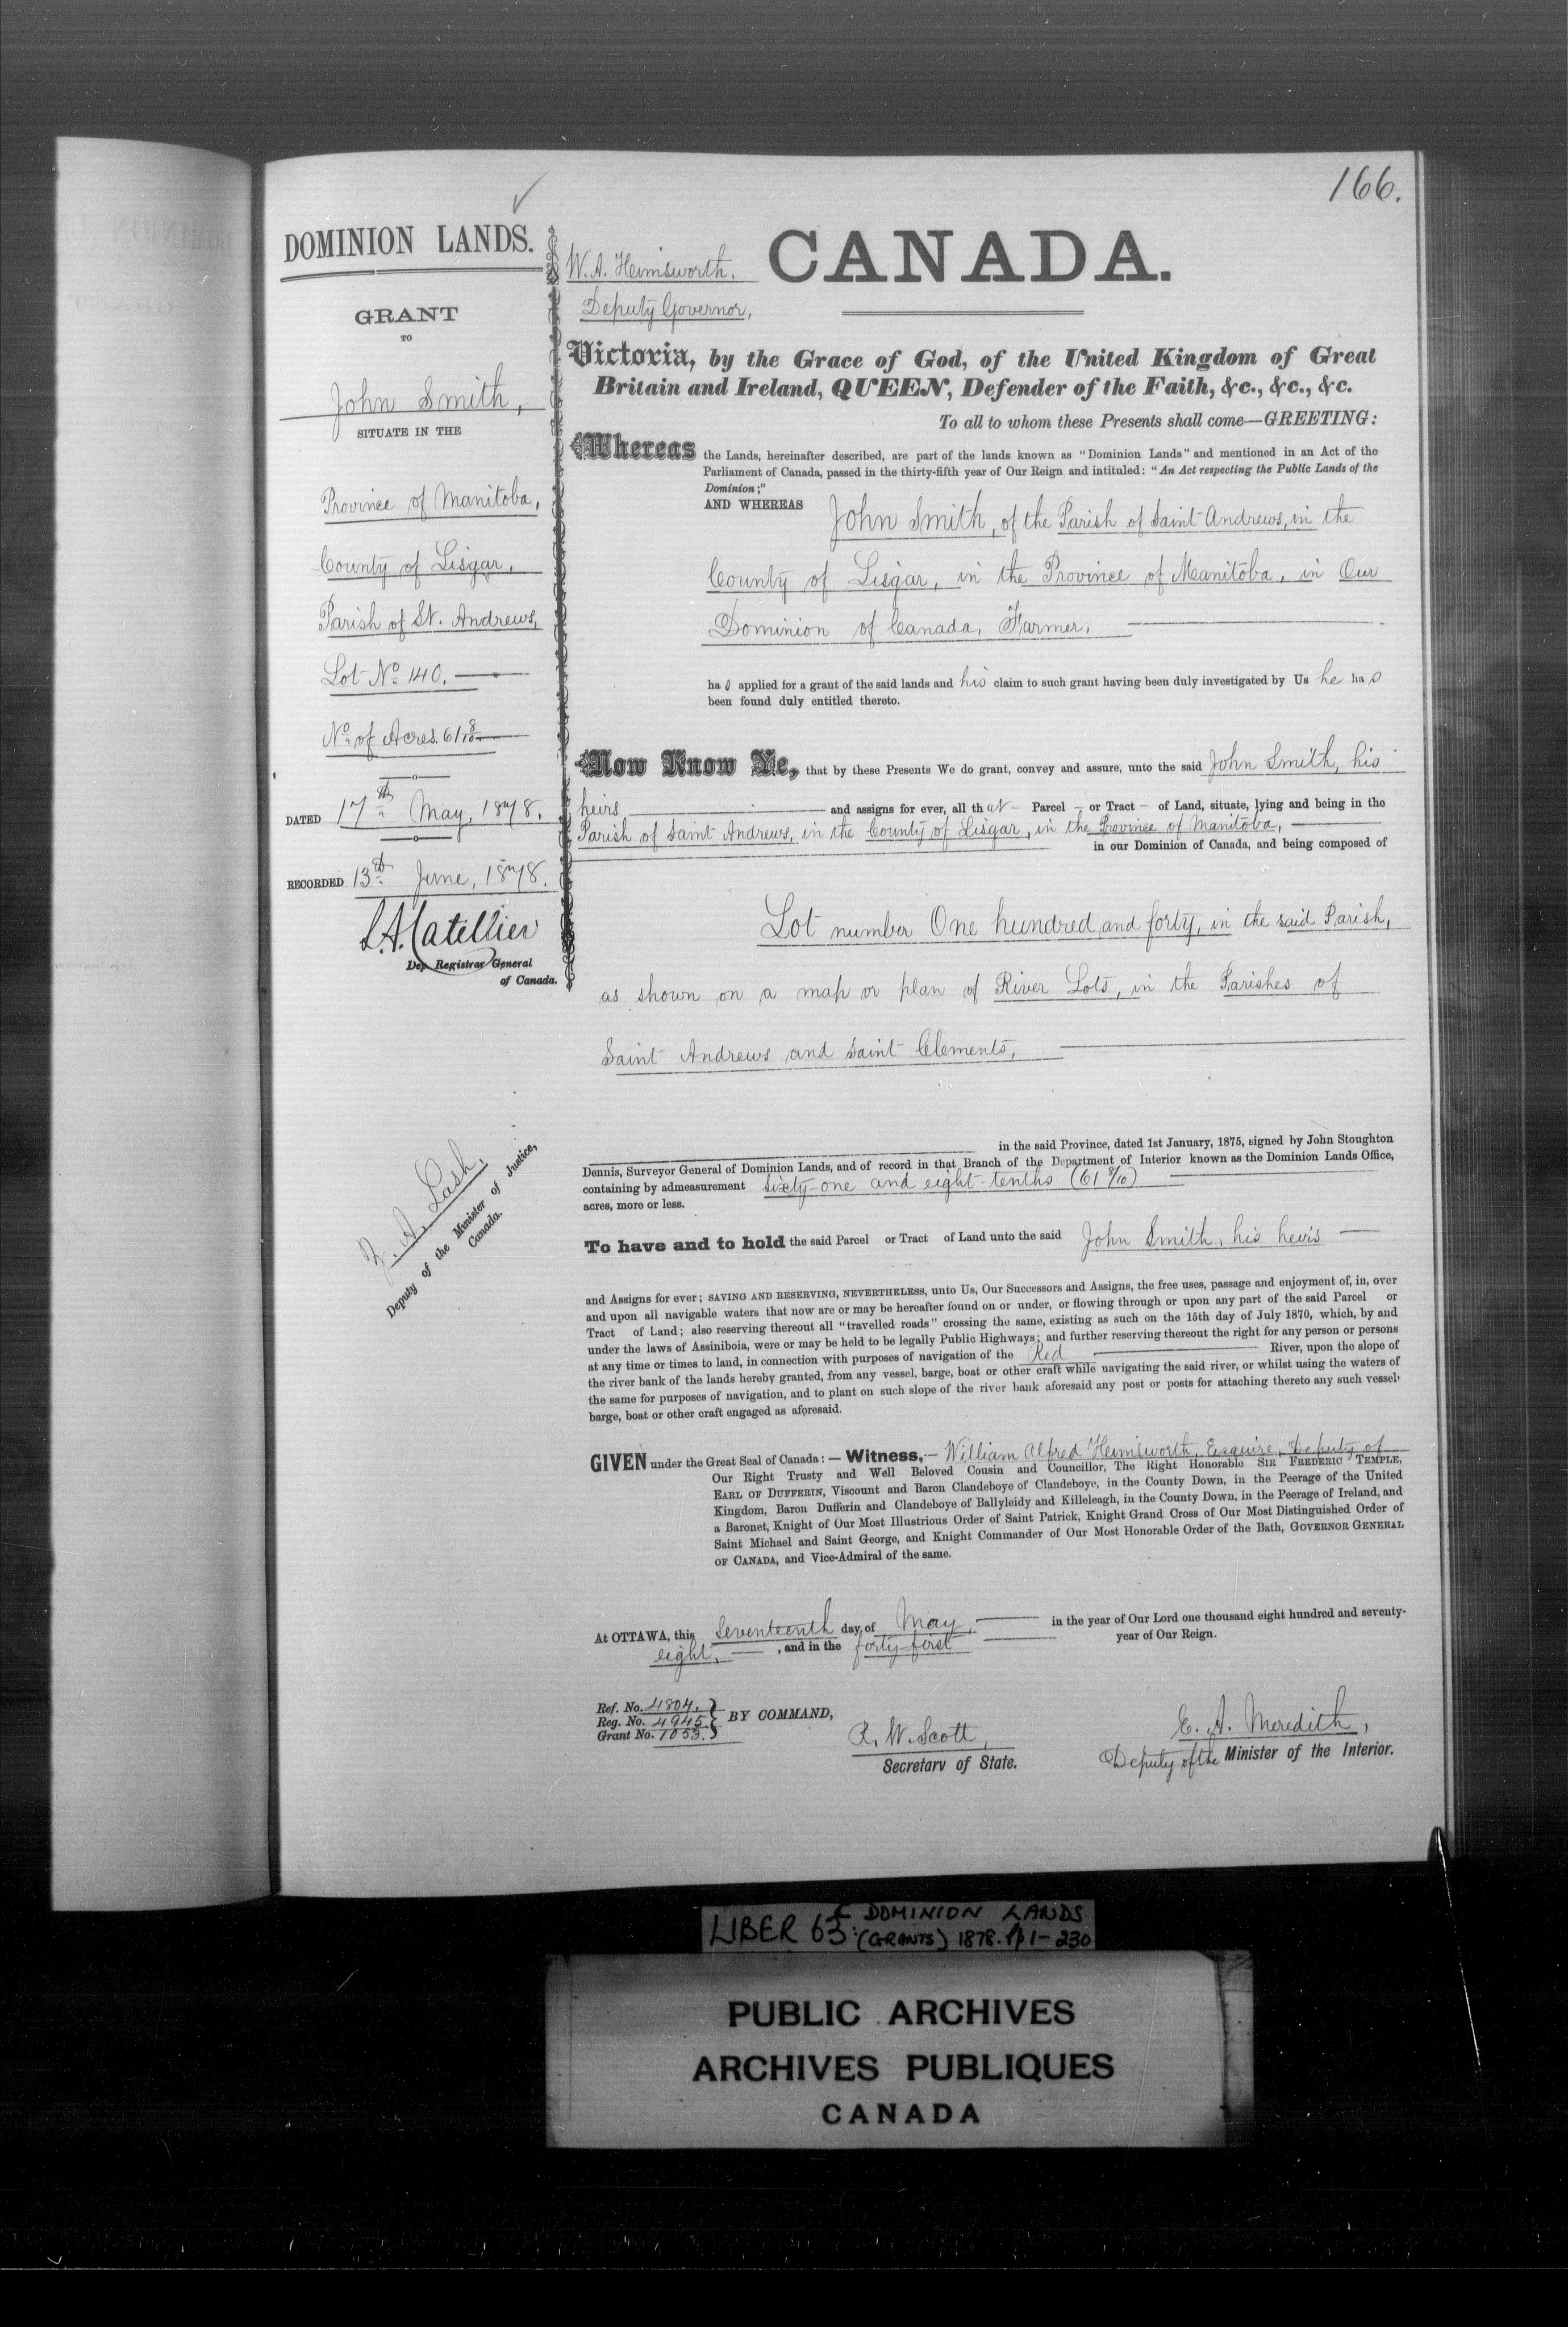 166.
DOMINION LANDS.
GRANT
TO
John Smith,
SITUATE IN THE
Province of Manitoba,
County of Lisgar,
Parish of St. Andrews,
Lot No 140.
No of Acres 61 8/10
DATED 17th May, 1878.
RECORDED 13th June, 1878.
L.A. Catellier
Dep. Registrar General
of Canada.
Z. A. Lash,
Deputy of the Minister of Justice,
Canada.
W. A. Himsworth,
Deputy Governor,
CANADA.
Victoria, by the Grace of God, of the United Kingdom of Great
Britain and Ireland, QUEEN, Defender of the Faith, &c., &c., &c.
To all to whom these Presents shall come—GREETING:
Whereas the Lands, hereinafter described, are part of the lands known as "Dominion Lands" and mentioned in an Act of the
Parliament of Canada, passed in the thirty-fifth year of Our Reign and intituled: "An Act respecting the Public Lands of the
Dominion;"
AND WHEREAS John Smith, of the Parish of Saint Andrews, in the
County of Lisgar, in the Province of Manitoba, in Our
Dominion of Canada, Farmer,
has applied for a grant of the said lands and his claim to such grant having been duly investigated by Us he has
been found duly entitled thereto.
Now Know Ye, that by these Presents We do grant, convey and assure, unto the said John Smith, his
heirs and assigns for ever, all that Parcel or Tract of Land, situate, lying and being in the
Parish of Saint Andrews, in the County of Lisgar, in the Province of Manitoba,
in our Dominion of Canada, and being composed of
Lot number One hundred and forty, in the said Parish,
as shown on a map or plan of River Lots, in the Parishes of
Saint Andrews and Saint Clements,
in the said Province, dated 1st January, 1875, signed by John Stoughton
Dennis, Surveyor General of Dominion Lands, and of record in that Branch of the Department of Interior known as the Dominion Lands Office,
containing by admeasurement sixty-one and eight-tenths (61 8/10)
acres, more or less.
To have and to hold the said Parcel or Tract of Land unto the said John Smith, his heirs
and Assigns for ever; SAVING AND RESERVING, NEVERTHELESS, unto Us, Our Successors and Assigns, the free uses, passage and enjoyment of, in, over
and upon all navigable waters that now are or may be hereafter found on or under, or flowing through or upon any part of the said Parcel or
Tract of Land; also reserving thereout all "travelled roads" crossing the same, existing as such on the 15th day of July 1870, which, by and
under the laws of Assiniboia, were or may be held to be legally Public Highways; and further reserving thereout the right for any person or persons
at any time or times to land, in connection with purposes of navigation of the Red River, upon the slope of
the river bank of the lands hereby granted, from any vessel, barge, boat or other craft while navigating the said river, or whilst using the waters of
the same for purposes of navigation, and to plant on such slope of the river bank aforesaid any post or posts for attaching thereto any such vessel,
barge, boat or other craft engaged as aforesaid.
GIVEN under the Great Seal of Canada:—Witness,—William Alfred Himsworth, Esquire, Deputy of
Our Right Trusty and Well Beloved Cousin and Councillor, The Right Honorable SIR FREDERIC TEMPLE,
EARL OF DUFFERIN, Viscount and Baron Clandeboye of Clandeboye, in the County Down, in the Peerage of the United
Kingdom, Baron Dufferin and Clandeboye of Ballyleidy and Killeleagh, in the County Down, in the Peerage of Ireland, and
a Baronet, Knight of Our Most Illustrious Order of Saint Patrick, Knight Grand Cross of Our Most Distinguished Order of
Saint Michael and Saint George, and Knight Commander of Our Most Honorable Order of the Bath, GOVERNOR GENERAL
OF CANADA, and Vice-Admiral of the same.
At OTTAWA, this Seventeenth day of May, in the year of Our Lord one thousand eight hundred and seventy-
eight, , and in the forty-first year of Our Reign.
Ref. No. 4804.
Reg. No. 4945.
Grant No. 1053.
BY COMMAND,
R. W. Scott,
Secretary of State.
E. A. Meredith,
Deputy of the Minister of the Interior.
LIBER 63: DOMINION LANDS
(GRANTS) 1878. pp 1-230
PUBLIC ARCHIVES
ARCHIVES PUBLIQUES
CANADA